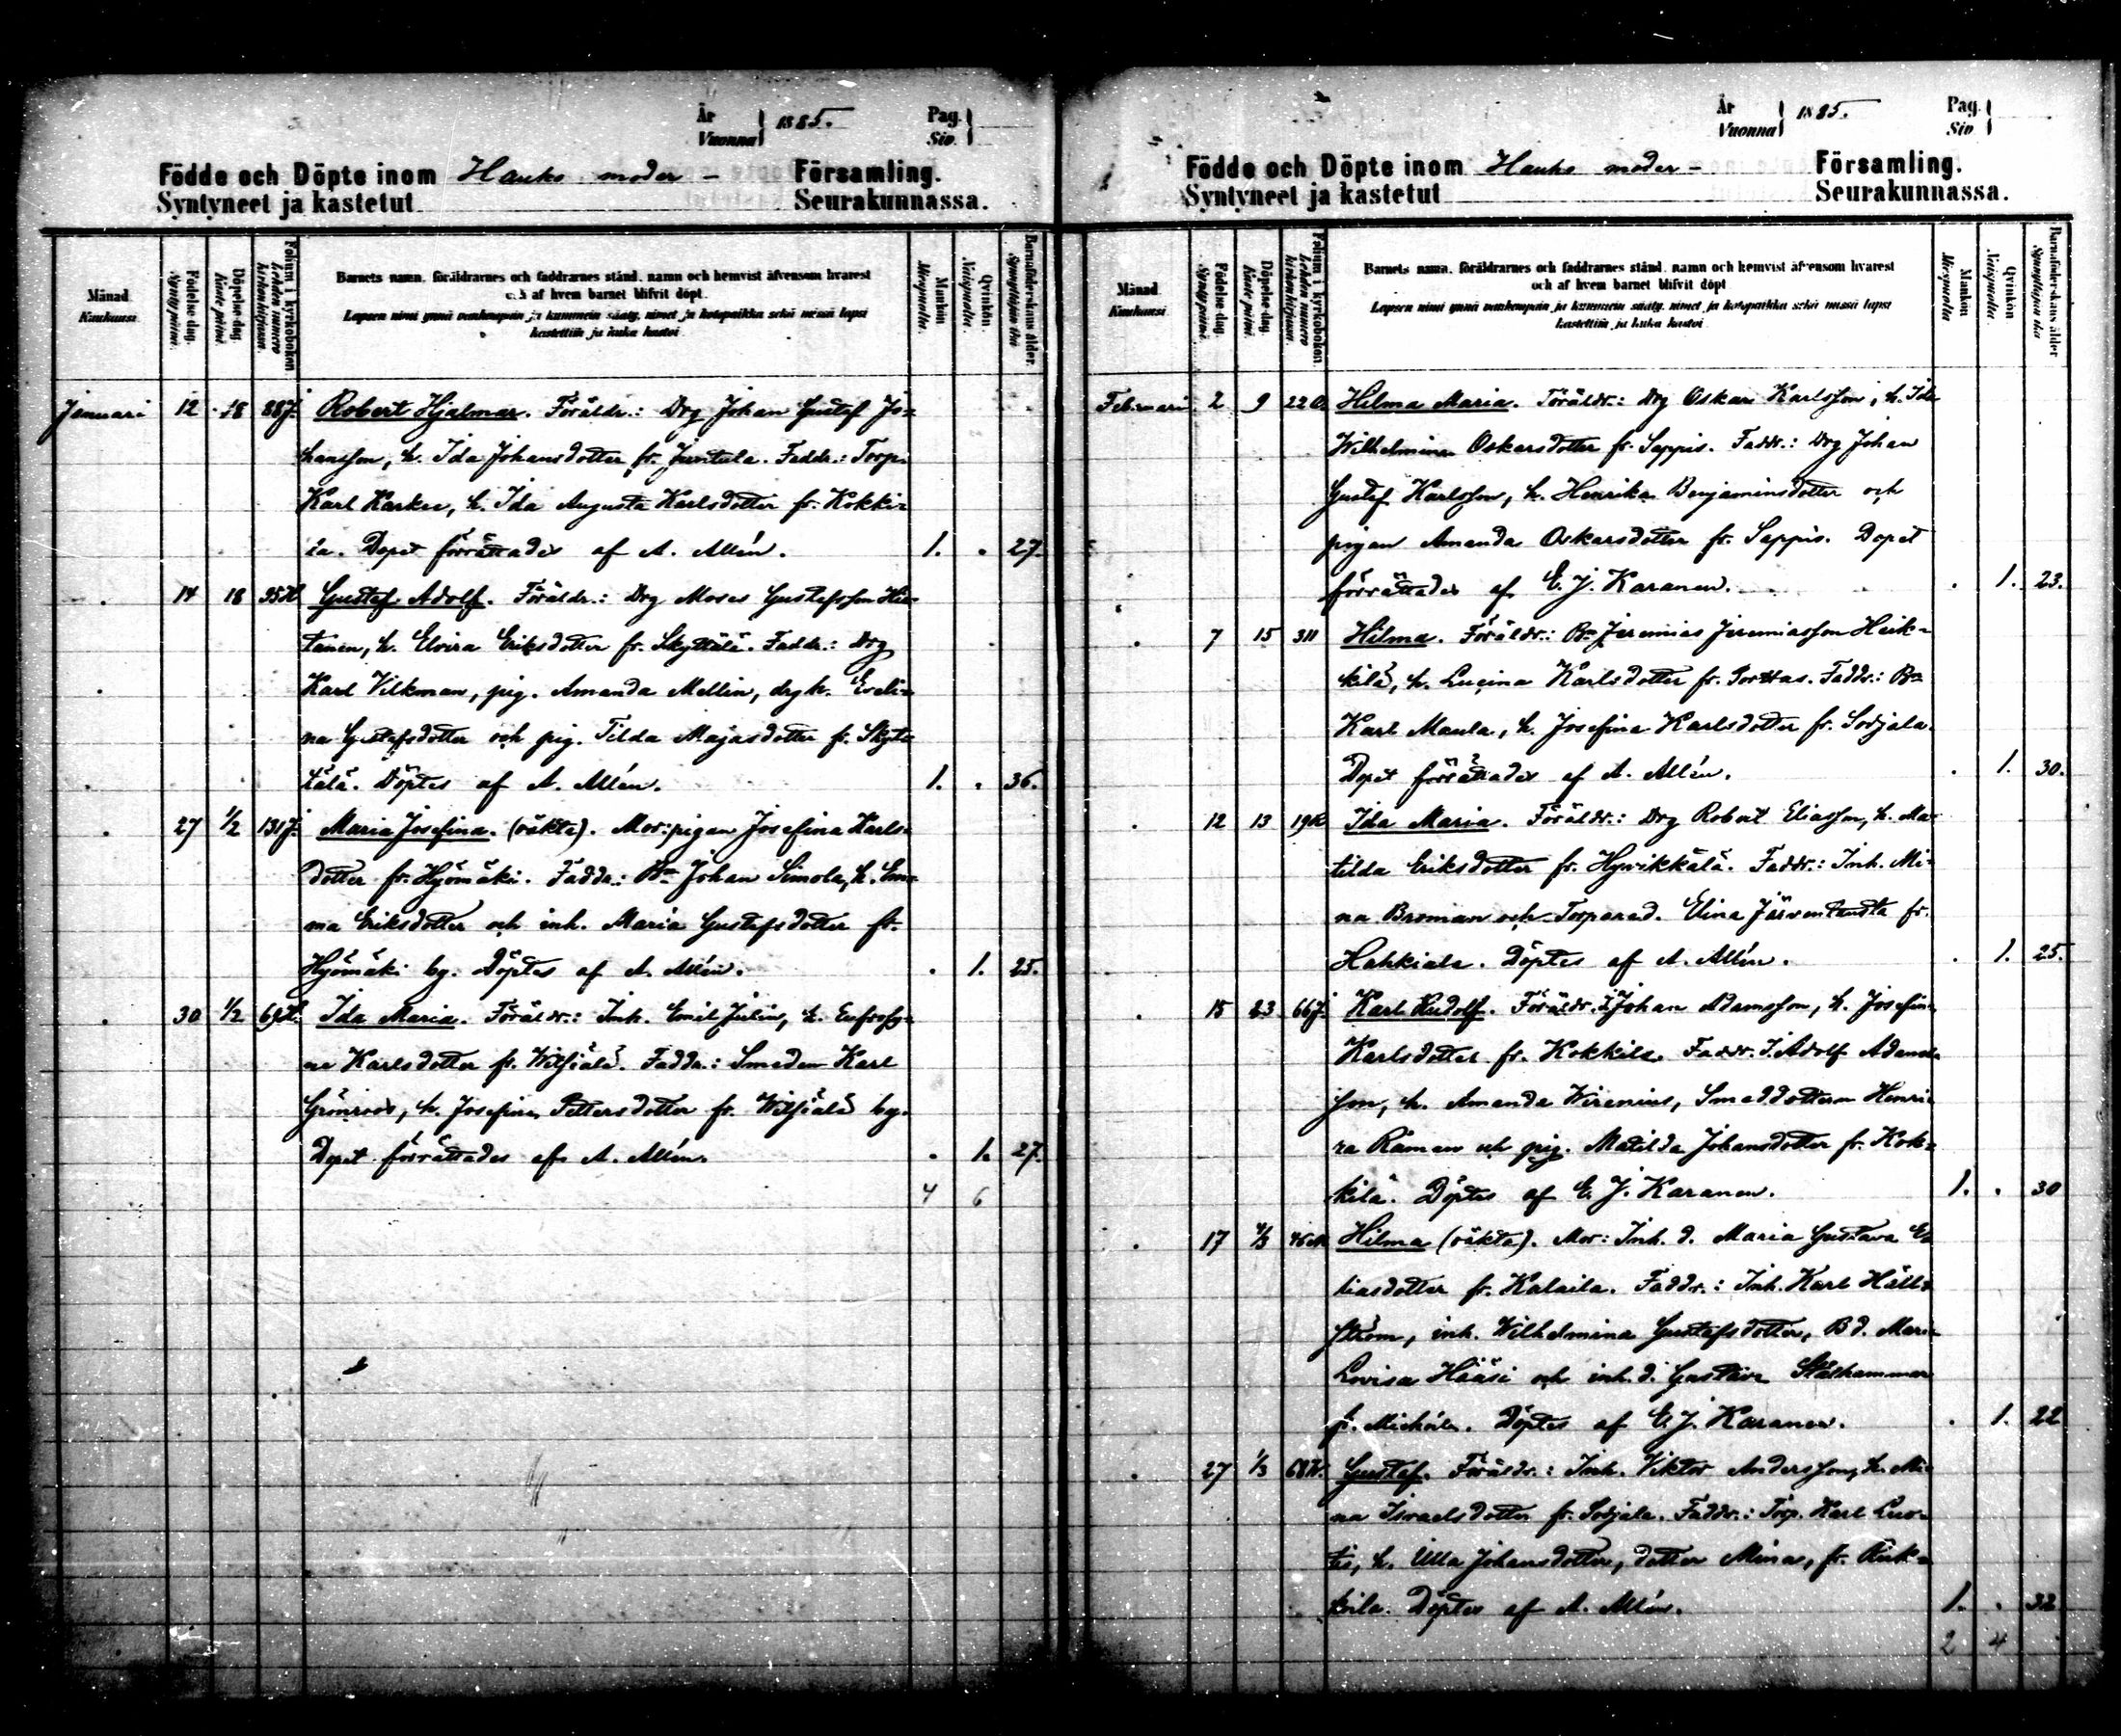 År
Vuonna 1885.
Pag.
Siv.
Födde och Döpte inom Hauho moder- Församling.
Syntyneet ja kastetut Seurakunnassa.
Månad.
Kuukausi.
Födelse-dag.
Syntypäivä.
Döpelse-dag.
Kaste päivä.
Folium i kyrkoboken
Lehden numero kirkonkirjassa.
Barnets namn, föräldrarnes och faddrarnes stånd, namn och hemvist äfvensom hvarest
och af hvem barnet blifvit döpt.
Lapsen nimi ynnä vanhempain ja kummein sääty, nimet ja kotopaikka sekä missä lapsi
kastettiin ja kuka kastoi
Mankön
Miespuolta.
Qvinkön.
Naispuolta.
Barnaföderskans ålder.
Synnyttäjän ikä
Januari 12 18 88 J. Robert Hjalmar. Föräldr.: Drg Johan Gustaf Jo-
hansson, h. Ida Johansdotter fr. Juntula. Faddr.: Torp.
Karl Karker, h. Ida Augusta Karlsdotter fr. Kokki-
la. Dopet förrättades af A. Allén. 1. . 27.
14 18 95 H Gustaf Adolf. Föräldr.: Drg Moses Gustafsson Hie-
tanen, h. Elvira Eriksdotter fr. Skyttälä. Faddr.: Drg
Karl Vilkman, pig. Amanda Mellin, drg h. Eveli-
na Gustafsdotter och pig. Tilda Majasdotter fr. Skyt-
tälä. Döptes af A. Allén. 1. . 36.
27 1/2 131 J. Maria Josefina. (oäkta). Mor: pigan Josefina Karls-
dotter fr. Hyömäki. Faddr.: Bn Johan Simola, h. Em-
ma Eriksdotter och inh. Maria Gustafsdotter fr.
Hyömäki by. Döptes af A. Allén. . 1. 25.
30 1/2 Ida Maria. Föräldr.: Inh. Emil Julin, h. Eufrosy-
ne Karlsdotter fr. Witsiälä. Faddr.: Smeden Karl
Grönroos, h. Josefina Pettersdotter fr. Witsiälä by.
Dopet förrättades af A. Allén. . 1. 27.
4 6
År
Vuonna 1885.
Pag.
Siv
Födde och Döpte inom Hauho moder- Församling.
Syntyneet ja kastetut Seurakunnassa.
Månad
Kuukausi
Födelse-dag.
Syntypäivä.
Döpelse-dag.
Kaste päivä.
Folium i kyrkoboken
Lehden numero kirkonkirjassa.
Barnets namn, föräldrarnes och faddrarnes stånd, namn och hemvist äfvensom hvarest
och af hvem barnet blifvit döpt
Lapsen nimi ynnä vanhempain ja kummein sääty, nimet ja kotopaikka sekä missä lapsi
kastettiin ja kuka kastoi
Mankön
Miespuolta
Qvinkön
Naispuolta.
Barnaföderskans ålder
Synnyttäjän ikä
Februari 2 9 22 O. Hilma Maria. Föräldr.: Drg Oskar Karlsson, h. Ida
Wilhelmina Oskarsdotter fr. Sappis. Faddr.: Drg Johan
Gustaf Karlsson, h. Henrika Benjaminsdotter och
pigan Amanda Oskarsdotter fr. Sappis. Dopet
förrättades af E. J. Karanen. . 1. 23.
7 15 311 Hilma. Föräldr.: Bn Jeremias Jeremiasson Heik-
kilä, h. Lucina Karlsdotter fr. Portas. Faddr.: Bn
Karl Maula, h. Josefina Karlsdotter fr. Sodjala.
Dopet förrättades af A. Allén. . 1. 30.
12 13 Ida Maria. Föräldr.: Drg Robert Eliasson, h. Ma-
tilda Eriksdotter fr. Hyvikkälä. Faddr.: Inh. Mi-
na Broman och Torparad. Elina Järventausta fr.
Hahkiala. Döptes af A. Allén. . 1. 25.
15 23 66 J. Karl Rudolf. Föräldr. I. Johan Adamsson, h. Josefina
Karlsdotter fr. Kokkila. Faddr. I. Adolf Adams-
son, h. Amanda Wirenius, Smeddottern Henri-
ka Råman och pig. Matilda Johansdotter fr. Kok-
kila. Döptes af E. J. Karanen. 1. . 30
17 4/3 Hilma (oäkta). Mor: Inh. d. Maria Gustava E-
liasdotter fr. Kalaila. Faddr.: Inh. Karl Häll-
ström, inh. Wilhelmina Gustafsdotter, Bd. Maria
Lovisa Hääsi och inh. d. Gustava Stålhammar
fr. Miehoila. Döptes af E. J. Karanen. . 1. 22
27 1/3 Gustaf. Föräldr.: Inh. Viktor Andersson, h. Mi-
na Israelsdotter fr. Sodjala. Faddr.: Torp. Karl
h. Ulla Johansdotter, dotter Mina, fr.
Döptes af A. Allén. 1. . 32
2 4